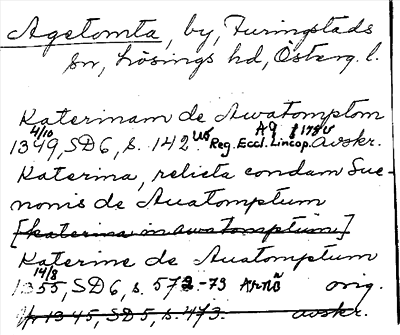 Agetomta, by, Furingstads
sn, Lösings hd, Österg. l.
Katerinam de Awatomptom
4/10 A9 f 178v
1349, SD6, s. 142 Reg. Eccl. Lincop. avskr.
Katerina, relicta condam Sue-
nonis de Auatomptum
[katerina in awatomptum]
Katerine de Auatomptum
14/8
1355, SD6, s. 572-73 orig.
1345, SD5, s. 473. avskr.